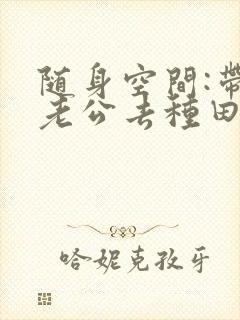 随身空間:帶
老公去種田
哈妮克孜牙